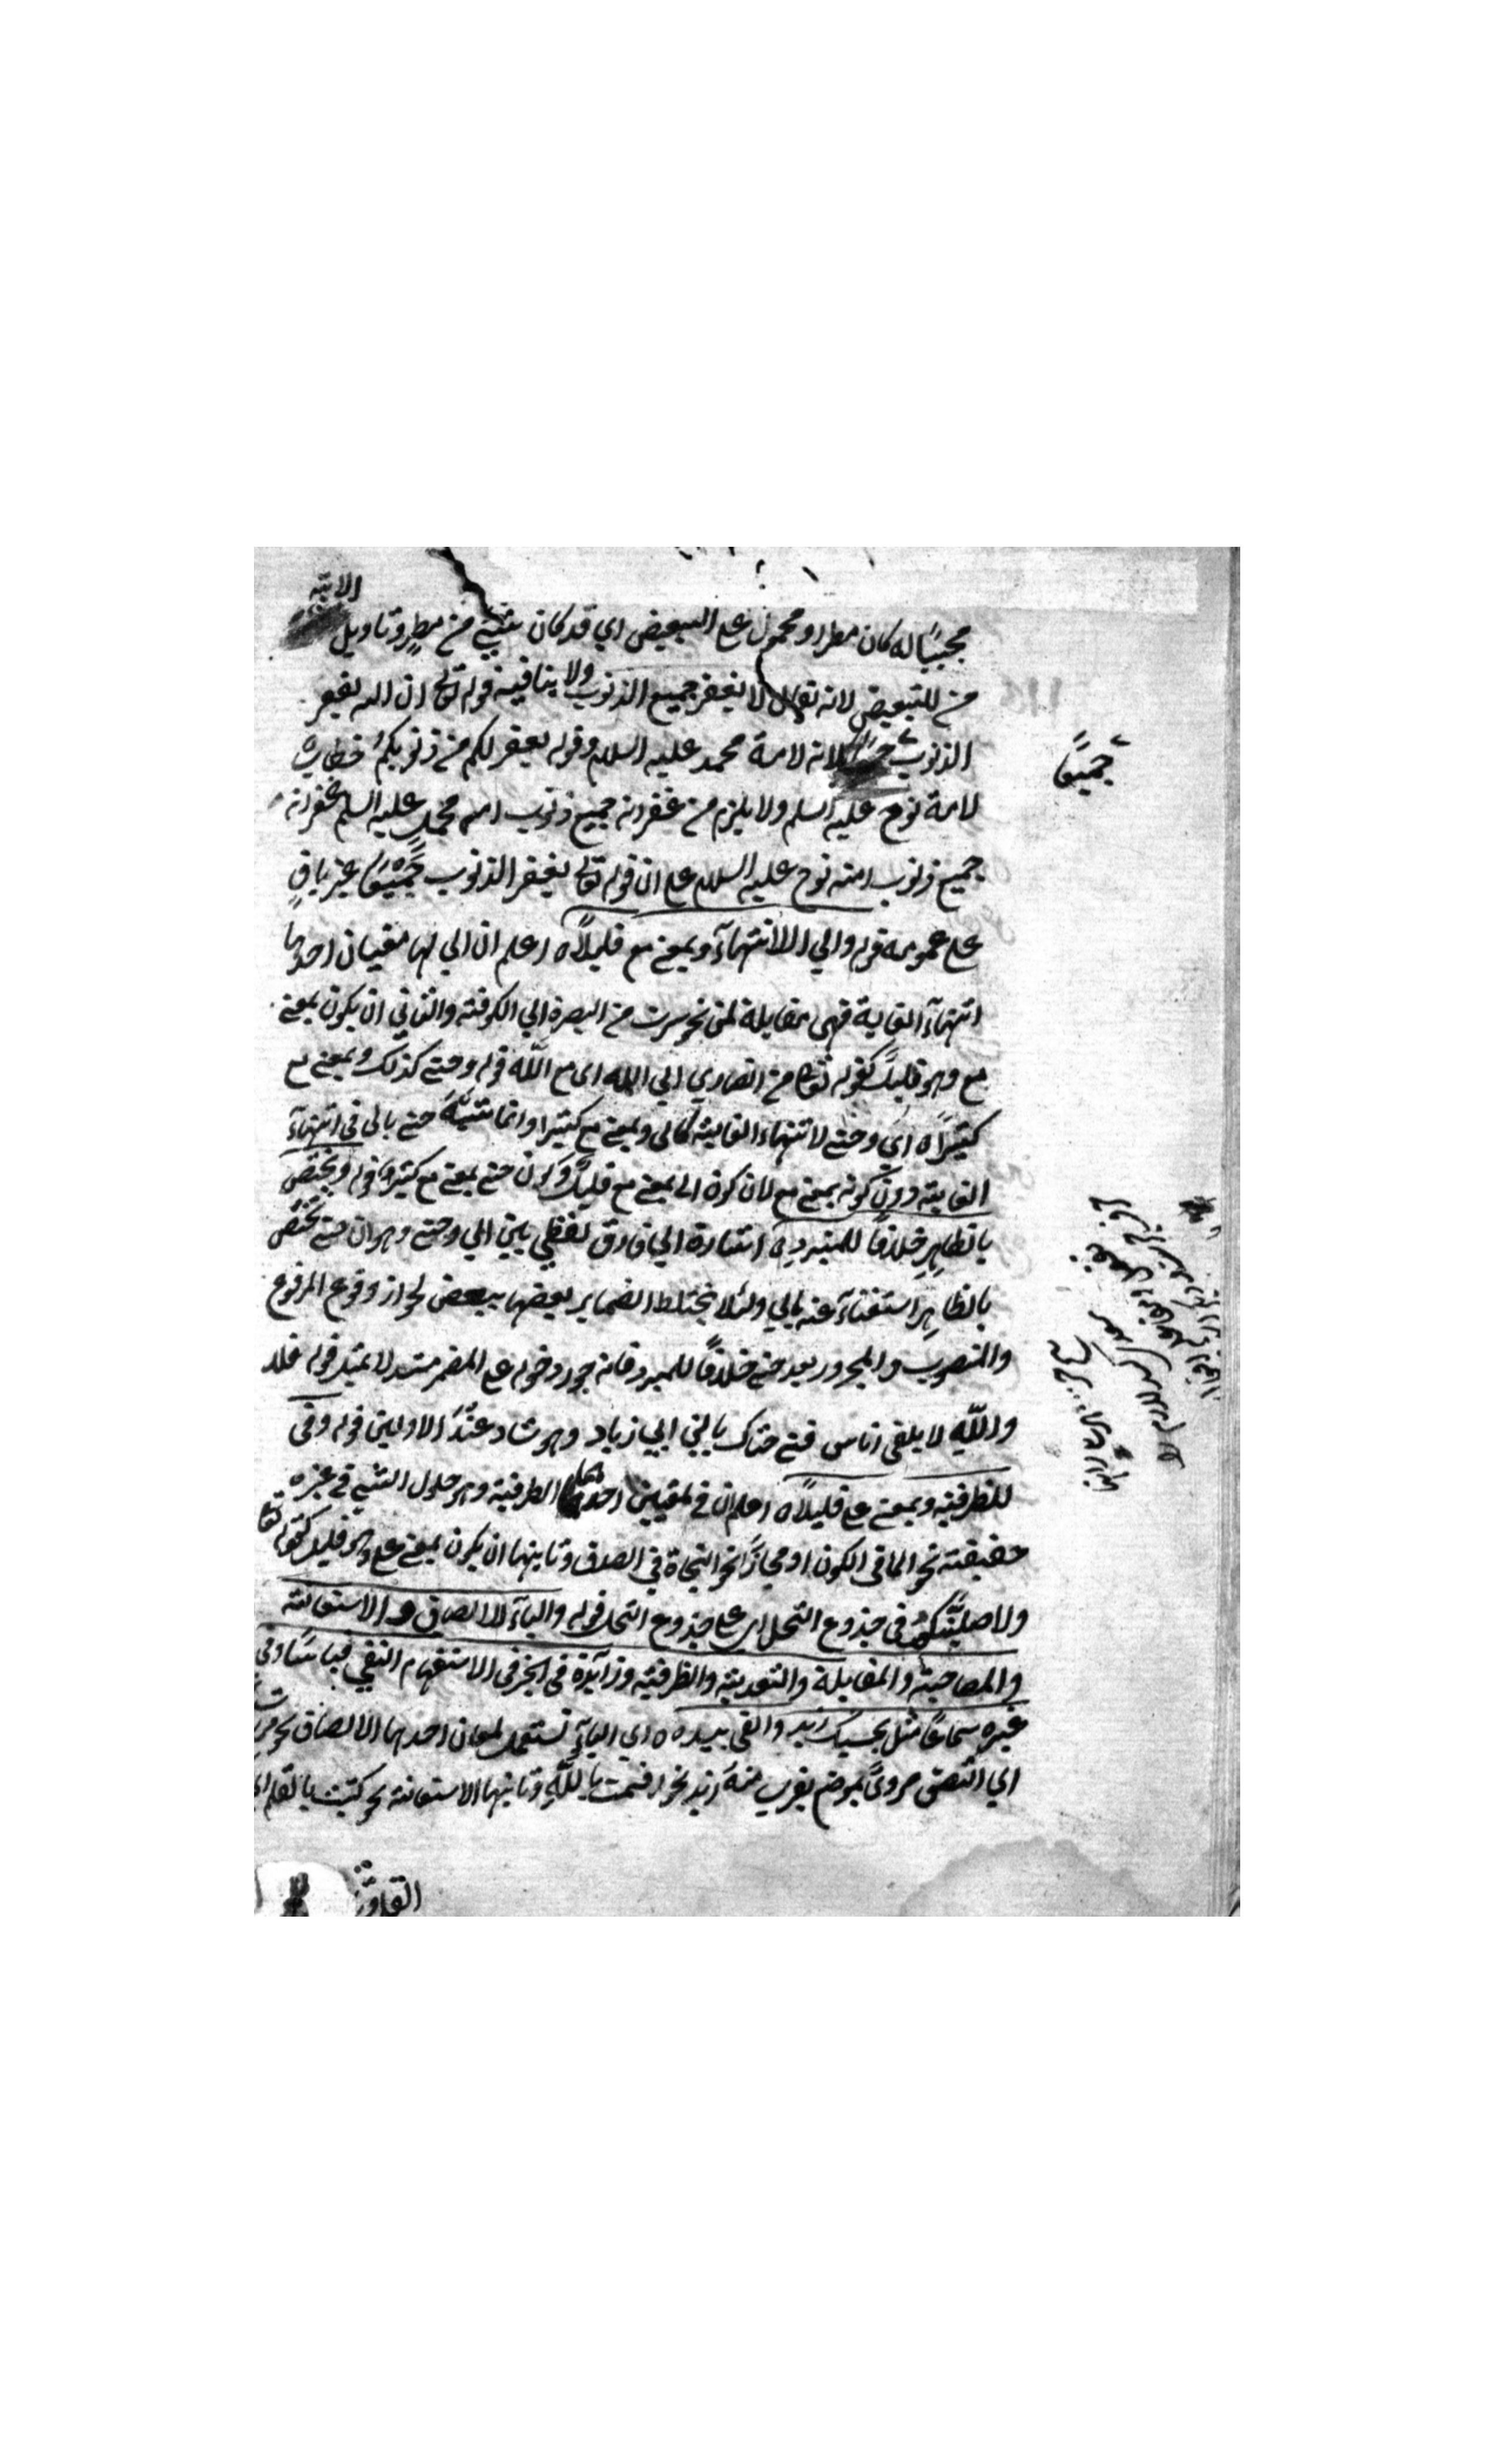 الاية
مجيبًا له كان مطرا ومحمول على التبعيض اي قد كان شيئ من مطرٍ وتاويل
من للتبعيض لانه تعالى لا يغفر جميع الذنوب ولا ينافيه قوله تعالى ان الله يغفر
الذنوب لانه لامة محمد عليه السلام وقوله يغفر لكم من ذنوبكم خطاب
جميعًا
لامة نوح عليه السلم ولا يلزم من غفرانه جميع ذنوب امة محمدٍ عليه السلم غفرانه
جميع ذنوب امته نوح عليه السلام على ان قوله تعالى يغفر الذنوب جميعًا غير باقٍ
على عمومه قوله والي للانتهآء وبمعنى مع قليلًا ه اعلم ان الي لها معنيان احدهما
انتهآء الغاية فهى بمقابلة لمن نحو سرت من البصرة الي الكوفة والثاني ان يكون بمعنى
مع وهو قليلً كقوله تعالى من انصاري الي الله اى مع اللّه قوله وحتى كذلك وبمعنى مع
كثيرًا ه اي وحتى لانتهاء الغاية كالى وبمعنى مع كثيرا وانما شبّه حتى بالى فى انتهآء
الغاية دون كونه بمعنى مع لان كون الى بمعنى مع قليلً وكون حتى بمعنى مع كثير قوله ويختص
بالظاهِرِ خلافًا للمبرد ه اشارة الي فارق لفظي بين الي وحتى وهو ان حتى تختص
بالظاهِرِ استغنآء عنه بالي ولئلا يختلط الضماير بعضها ببعض لجواز وقوع المرفوع
والمنصوب والمجرور بعد حتى خلافًا للمبرد فانه جوز دخوله على المضمر مستدلا بمثل قوله فلا
واللّهِ لا يلقى اناس فتى حتاك يا ابن ابي زياد وهو شاذ عند الاولين قوله وفى
للظرفية وبمعنى على قليلًا ه اعلم ان في لمعنيين احدهما الظرفية وهو حلول الشئ في غيره
حقيقته نحو الما فى الكوز او مجازًا نحو النجاة في الصدق وثانيهما ان يكون بمعنى على وهو قليلا كقوله تعالى
ولاصلبنَّكم فى جذوع النخل اى على جذوع النخل قوله والباء للالصاق والاستعانة
والمصاحبة والمقابلة والتعدية والظرفية وزآئدة في الخبر فى الاستفهام النفي قياسًا وفى
غيره سماعًا مثل بحسبك زيد والقى بيده ه اي البآء تستعمل لمعان احدها الالصاق نحو مررت
اي التصق مرورى بموضع يقرب منه زيد نحو اقسمت باللّهِ وثانيها الاستعانة نحو كتبت بالقلم اى